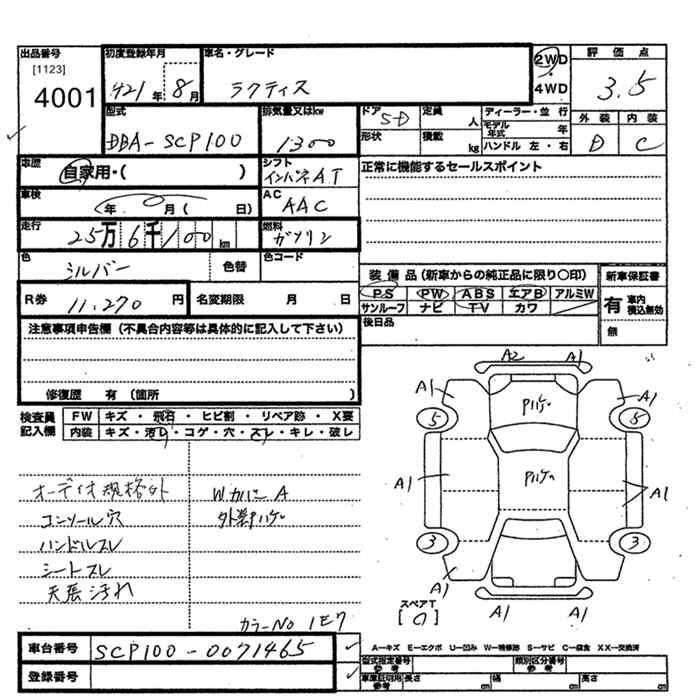 出品番号 初度登録年月 車名・グレード 2WD 評価点
[1123] 4WD 3.5
4001 H21年 8月 ラクティス
外装 内装
D C
型式 排気量又はkw ドア 5D 定員 人 ディーラー・並行
DBA-SCP100 1300 形状 積載 kg モデル年式 年
ハンドル 左・右
車歴 自家用・( ) シフト インパネAT 正常に機能するセールスポイント
車検 年 月( 日) AC AAC
走行 25万6千100km 燃料 ガソリン
色 シルバー 色替 色コード
装備品(新車からの純正品に限り○印) 新車保証書
R券 11,270円 名変期限 月 日
PS PW ABS エアB アルミW 有 車内積込無効
サンルーフ ナビ TV カワ
注意事項申告欄(不具合内容等は具体的に記入して下さい) 後日品 無
修復歴 有(箇所 )
検査員記入欄
FW キズ・飛石・ヒビ割・リペア跡・X要
内装 キズ・汚れ・コゲ・穴・スレ・キレ・破レ
A2 A1
A1 A1
5 5
Pハゲ
Pハゲ
A1 A1
3 3
A1 A1
A1 A1
オーディオ規格外 WカバーA
コンソール穴 外装ハゲ
ハンドルスレ
シートスレ
天張汚れ
スペアT
カラーNo 1E7
車台番号 SCP100-0071465
登録番号
A=キズ E=エクボ U=凹み W=補修跡 S=サビ C=腐食 XX=交換済
型式指定番号 参考 類別区分番号 参考
車庫証明用参考 長さ cm 幅 cm 高さ cm